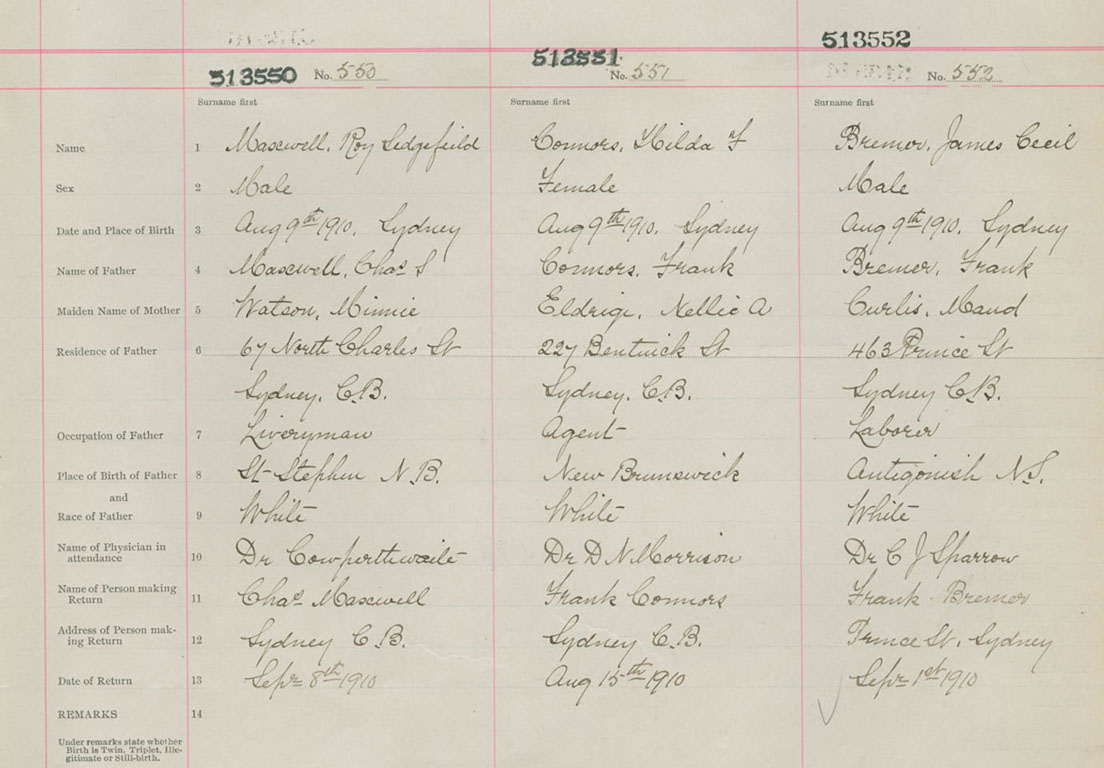 513550 No. 550
513551 No. 551
513552 No. 552
Surname first Surname first Surname first
Name 1 Maxwell, Roy Sedgefield Connors, Hilda F Bremer, James Cecil
Sex 2 Male Female Male
Date and Place of Birth 3 Aug 9th 1910, Sydney Aug 9th 1910, Sydney Aug 9th 1910, Sydney
Name of Father 4 Maxwell, Chas S Connors, Frank Bremer, Frank
Maiden Name of Mother 5 Watson, Minnie Eldrige, Nellie A Curlis, Maud
Residence of Father 6 67 North Charles St 227 Bentwick St 463 Prince St
Sydney, C.B. Sydney, C.B. Sydney C.B.
Occupation of Father 7 Liveryman Agent Laborer
Place of Birth of Father 8 St Stephen N.B. New Brunswick Antigonish N.S.
and
Race of Father 9 White White White
Name of Physician in
attendance 10 Dr Cowperthwaite Dr D N Morrison Dr C J Sparrow
Name of Person making
Return 11 Chas Maxwell Frank Connors Frank Bremer
Address of Person mak-
ing Return 12 Sydney C.B. Sydney C.B. Prince St, Sydney
Date of Return 13 Sepr 8th 1910 Aug 15th 1910 Sepr 1st 1910
REMARKS 14
Under remarks state whether
Birth is Twin, Triplet, Ille-
gitimate or Still-birth.